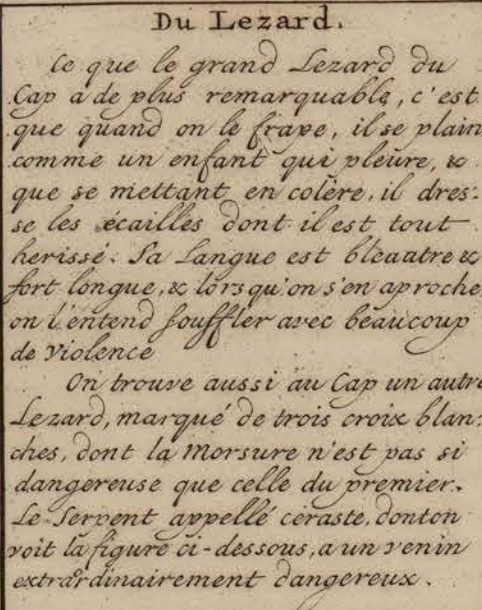 Du Lezard.
Ce que le grand Lezard du
Cap a de plus remarquable, c'est
que quand on le frape, il se plain
comme un enfant qui pleure, &
que se mettant en colère, il dres-
se les écailles dont il est tout
herissé. Sa Langue est bleuatre &
fort longue, & lorsqu'on s'en aproche
on l'entend souffler avec beaucoup
de violence
On trouve aussi au Cap un autre
Lezard, marqué de trois croix blan-
ches, dont la Morsure n'est pas si
dangereuse que celle du premier.
Le Serpent appellé céraste, donton
voit la figure ci-dessous, a un venin
extraordinairement dangereux.